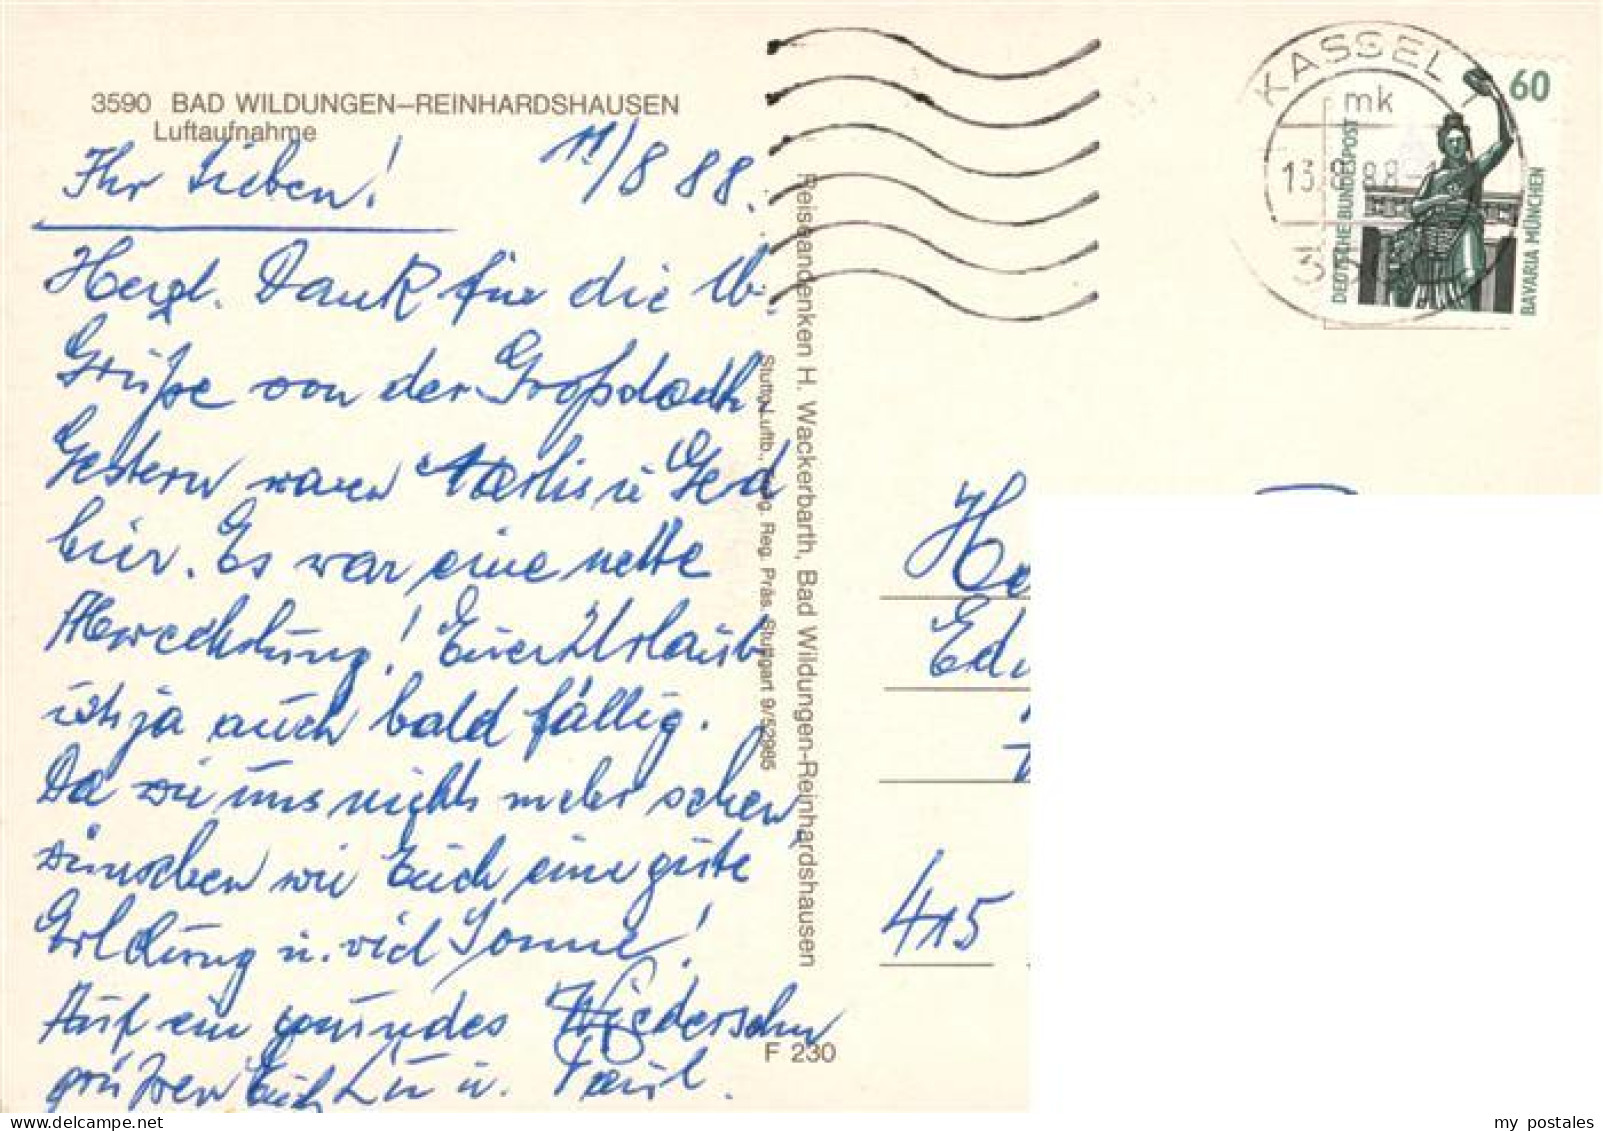 3590 BAD WILDUNGEN–REINHARDSHAUSEN
Luftaufnahme
11/8 88.
Ihr Lieben!
Herzl. Dank für die lb.
Grüße von der Großstadt.
Gestern waren u Gerd
hier. Es war eine nette
Abwechslung! Euer Urlaub
ist ja auch bald fällig.
Da wir uns nicht mehr sehen,
wünschen wir Euch eine gute
Erholung u. viel Sonne!
Auf ein gesundes Wiedersehn
grüßen Euch u. Paul.
Reiseandenken H. Wackerbarth, Bad Wildungen-Reinhardshausen
Stuttg. Luftb., Reg. Präs. Stuttgart 9/52985
F 230
KASSEL
mk
13.8.88
60
DEUTSCHE BUNDESPOST
BAVARIA MÜNCHEN
415
my postales